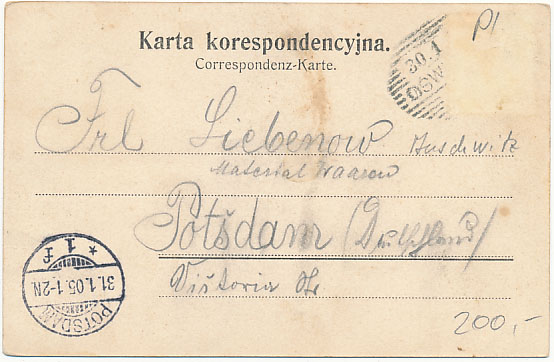 Pl
Karta korespondencyjna.
Correspondenz-Karte.
30.1
OSW
Frl Liebenow Auschwitz
Material Waaren
Potsdam (Deutschland)
Victoria Str
* 1 f
31.1.05.1-2N
POTSDAM
200,-